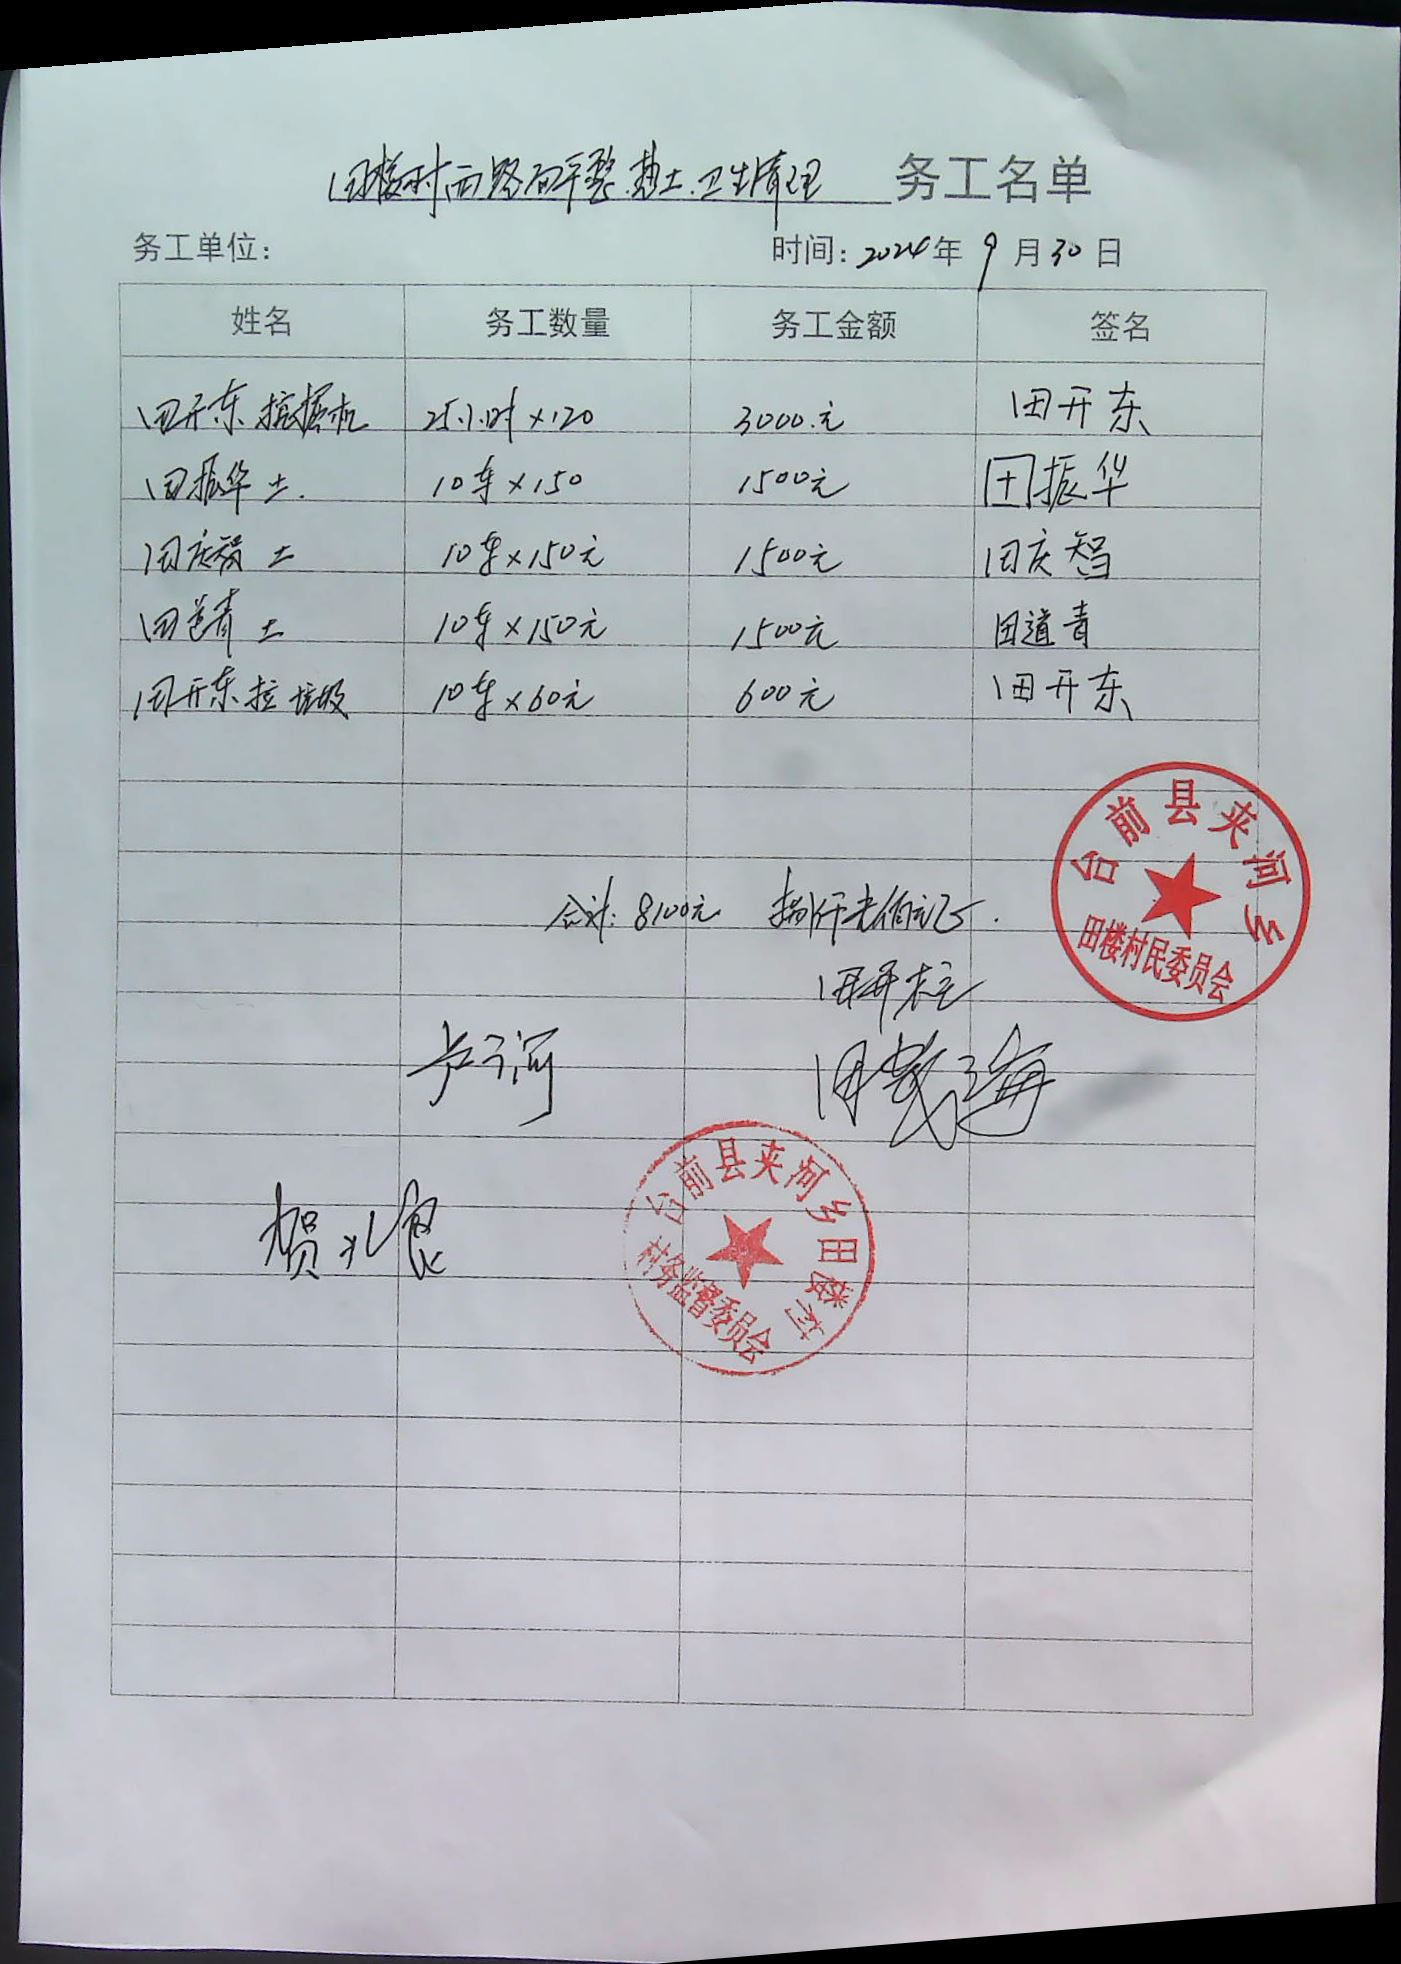 田楼村西路面平整.垫土.卫生清理 务工名单
务工单位： 时间：2024年 9 月 30 日
姓名 务工数量 务工金额 签名
田开东 挖掘机 25小时×120 3000.元 田开东
田振华 土. 10车×150 1500元 田振华
田庆智 土 10车×150元 1500元 田庆智
田道青 土 10车×150元 1500元 田道青
田开东 拉垃圾 10车×60元 600元 田开东
合计：8100元 捌仟壹佰元正.
台前县夹河乡
田楼村民委员会
台前县夹河乡田楼村
村务监督委员会